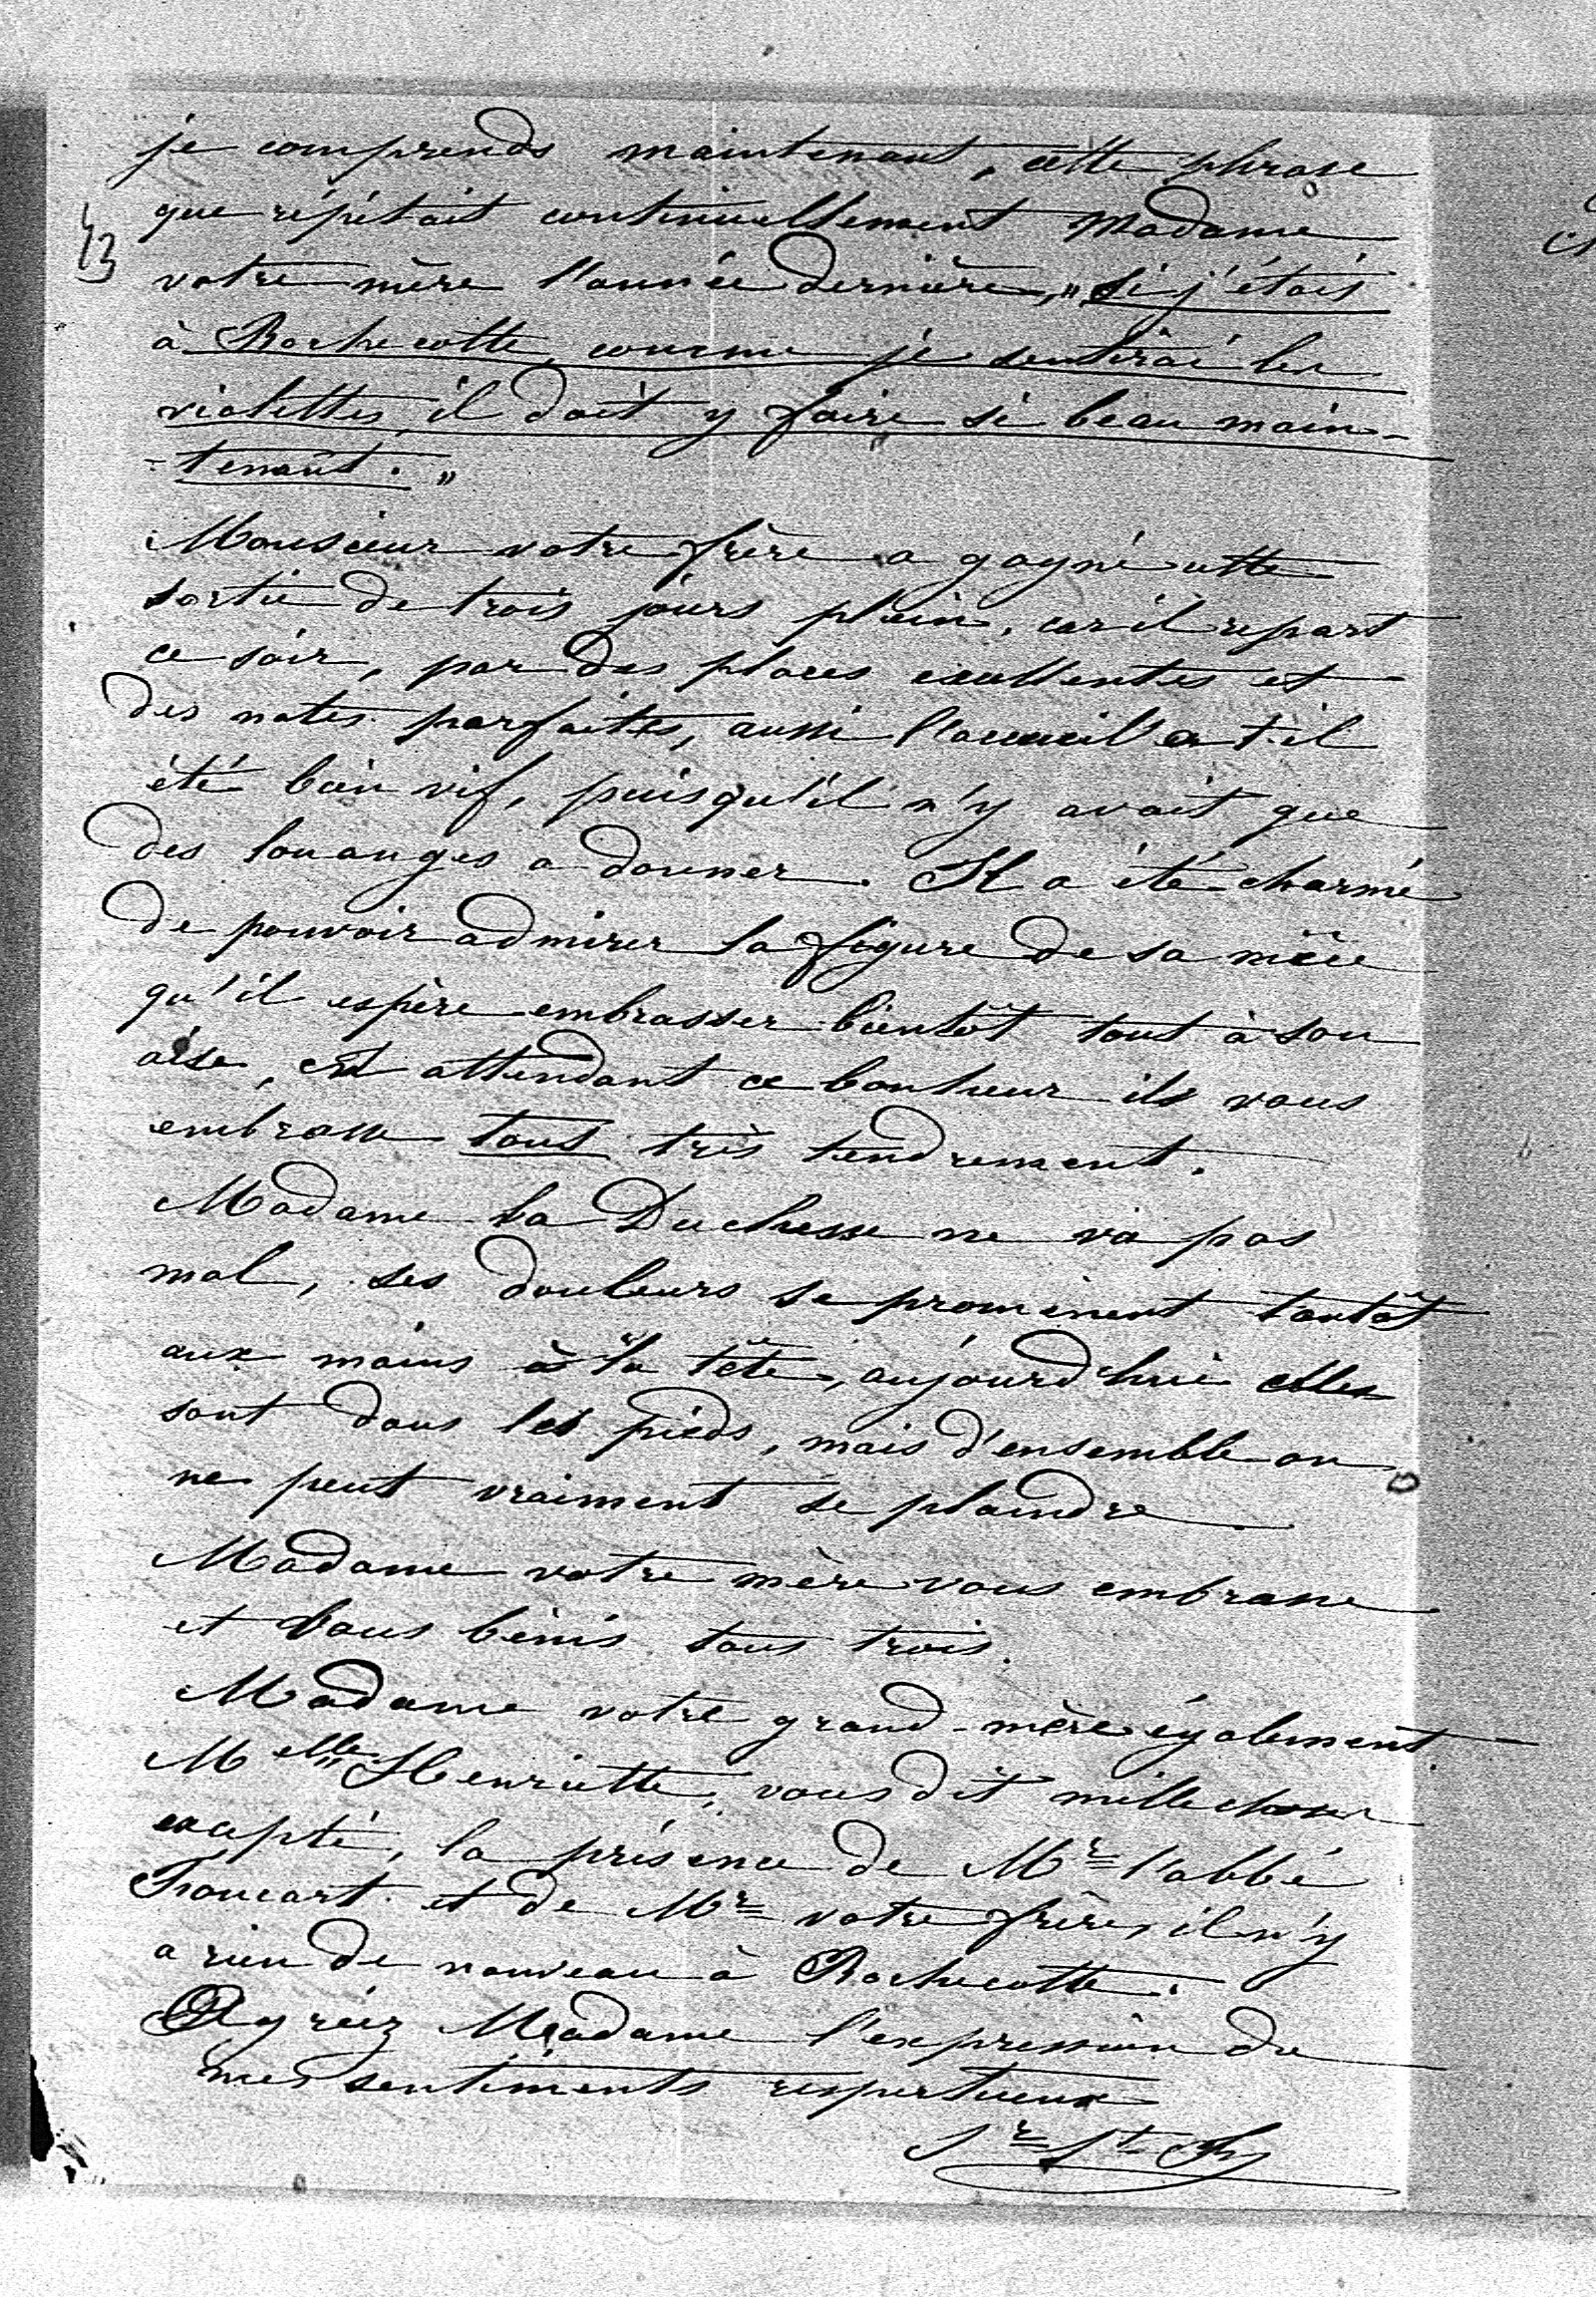 je comprends maintenant, cette phrase
que répétait continuellement Madame
votre mère l'année dernière, "si j'étais
à Rochecotte, comme je sentirai les
violettes, il doit y faire si beau main-
-tenant."
Monsieur votre frère a gagné cette
sortie de trois jours plein, car il repart
ce soir, par des places excellentes et
des notes parfaites, aussi l'accueil a t-il
été bien vif, puisqu'il n'y avait que
des louanges a donner. Il a été charmé
de pouvoir admirer la figure de sa nièce
qu'il espère embrasser bientôt tout à son
aise, en attendant ce bonheur il vous
embrasse tous très tendrement.
Madame la Duchesse ne va pas
mal, ses douleurs se promènent tantôt
aux mains à la tête, aujourd'hui elles
sont dans les pieds, mais d'ensemble on
ne peut vraiment se plaindre
Madame votre mère vous embrasse
et vous bénis tous trois.
Madame votre grand-mère également.
Melle Henriette, vous dit mille choses
excepté, la présence de Mr l'abbé
Foucart et de Mr votre frère, il n'y
a rien de nouveau à Rochecotte.
Agréez Madame l'expression de
mes sentiments respectueux
Sr St